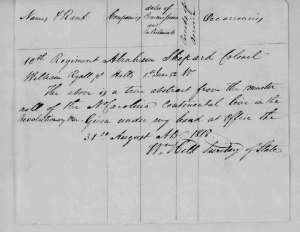 Names & Rank Companies dates of Commissions and Enlistments Periods of Service Occurrences
10th Regiment Abraham Shepard Colonel
William 1st June
The above is a true abstract from the muster
roll of the No Carolina Continental line in the
Revolutionary War. Given under my hand at office the
31st August AD 1818
Wm Hill Secretary of State